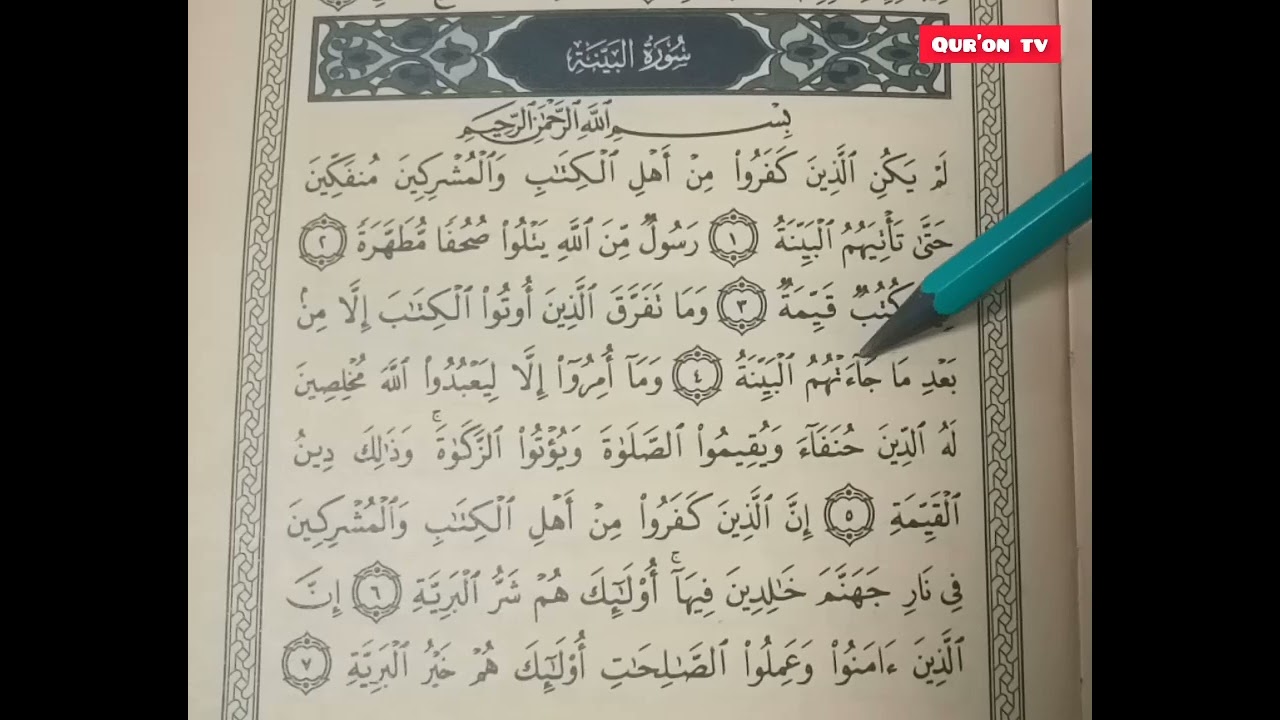 Qur'on tv
سُورَةُ البَيِّنَةِ
بِسۡمِ ٱللَّهِ ٱلرَّحۡمَٰنِ ٱلرَّحِيمِ
لَمۡ يَكُنِ ٱلَّذِينَ كَفَرُواْ مِنۡ أَهۡلِ ٱلۡكِتَٰبِ وَٱلۡمُشۡرِكِينَ مُنفَكِّينَ
حَتَّىٰ تَأۡتِيَهُمُ ٱلۡبَيِّنَةُ ١ رَسُولٞ مِّنَ ٱللَّهِ يَتۡلُواْ صُحُفٗا مُّطَهَّرَةٗ ٢
كُتُبٞ قَيِّمَةٞ ٣ وَمَا تَفَرَّقَ ٱلَّذِينَ أُوتُواْ ٱلۡكِتَٰبَ إِلَّا مِنۢ
بَعۡدِ مَا جَآءَتۡهُمُ ٱلۡبَيِّنَةُ ٤ وَمَآ أُمِرُوٓاْ إِلَّا لِيَعۡبُدُواْ ٱللَّهَ مُخۡلِصِينَ
لَهُ ٱلدِّينَ حُنَفَآءَ وَيُقِيمُواْ ٱلصَّلَوٰةَ وَيُؤۡتُواْ ٱلزَّكَوٰةَۚ وَذَٰلِكَ دِينُ
ٱلۡقَيِّمَةِ ٥ إِنَّ ٱلَّذِينَ كَفَرُواْ مِنۡ أَهۡلِ ٱلۡكِتَٰبِ وَٱلۡمُشۡرِكِينَ
فِي نَارِ جَهَنَّمَ خَٰلِدِينَ فِيهَآۚ أُوْلَٰٓئِكَ هُمۡ شَرُّ ٱلۡبَرِيَّةِ ٦ إِنَّ
ٱلَّذِينَ ءَامَنُواْ وَعَمِلُواْ ٱلصَّٰلِحَٰتِ أُوْلَٰٓئِكَ هُمۡ خَيۡرُ ٱلۡبَرِيَّةِ ٧